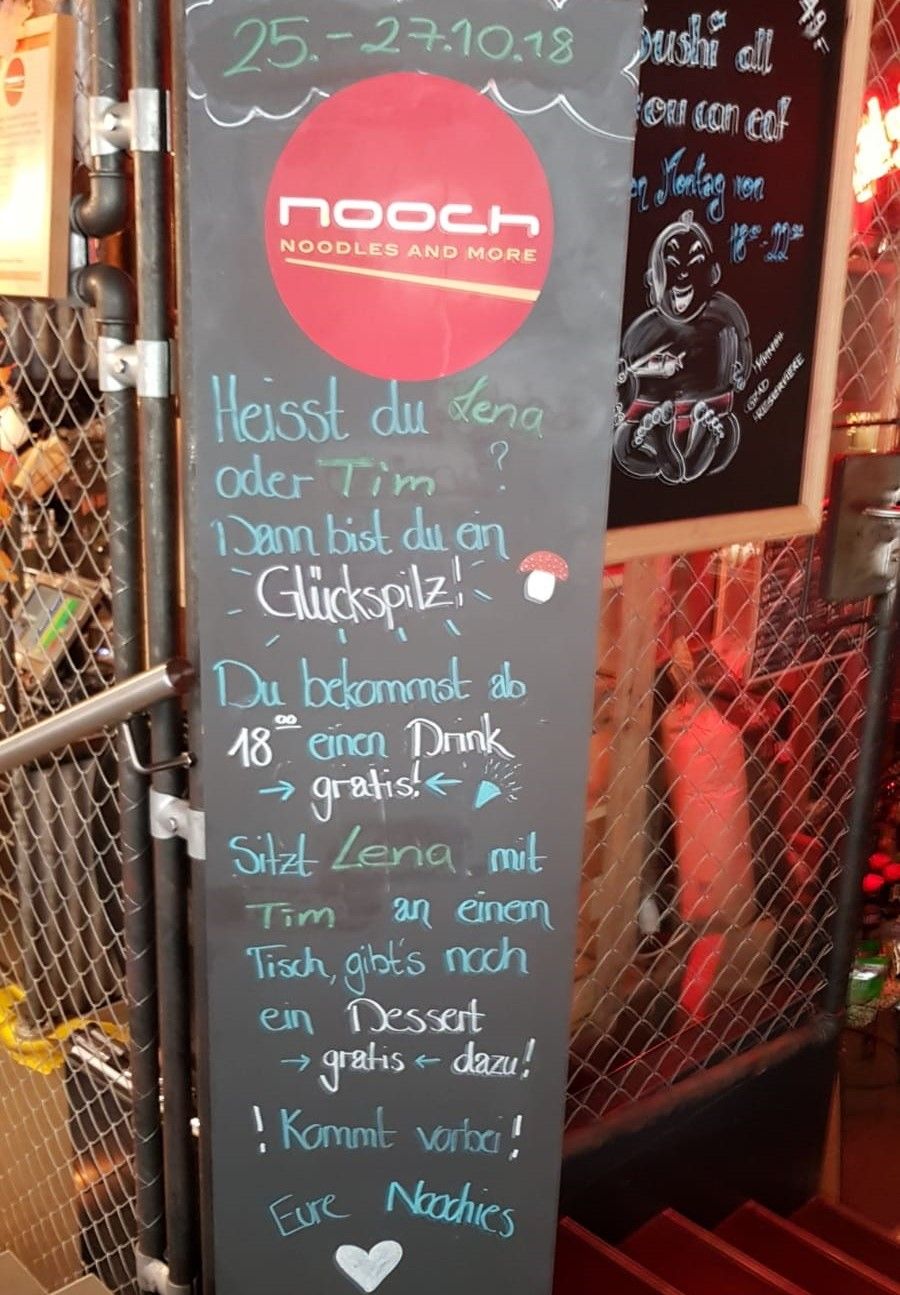 25.-27.10.18
nooch
NOODLES AND MORE
Heisst du Lena
oder Tim ?
Dann bist du ein
Glückspilz!
Du bekommst ab
18⁰⁰ einen Drink
→ gratis! ←
Sitzt Lena mit
Tim an einem
Tisch, gibt's noch
ein Dessert
→ gratis ← dazu!
! Kommt vorbei !
Eure Noochies
sushi all
you can eat
Montag von
18⁰⁰-22⁰⁰